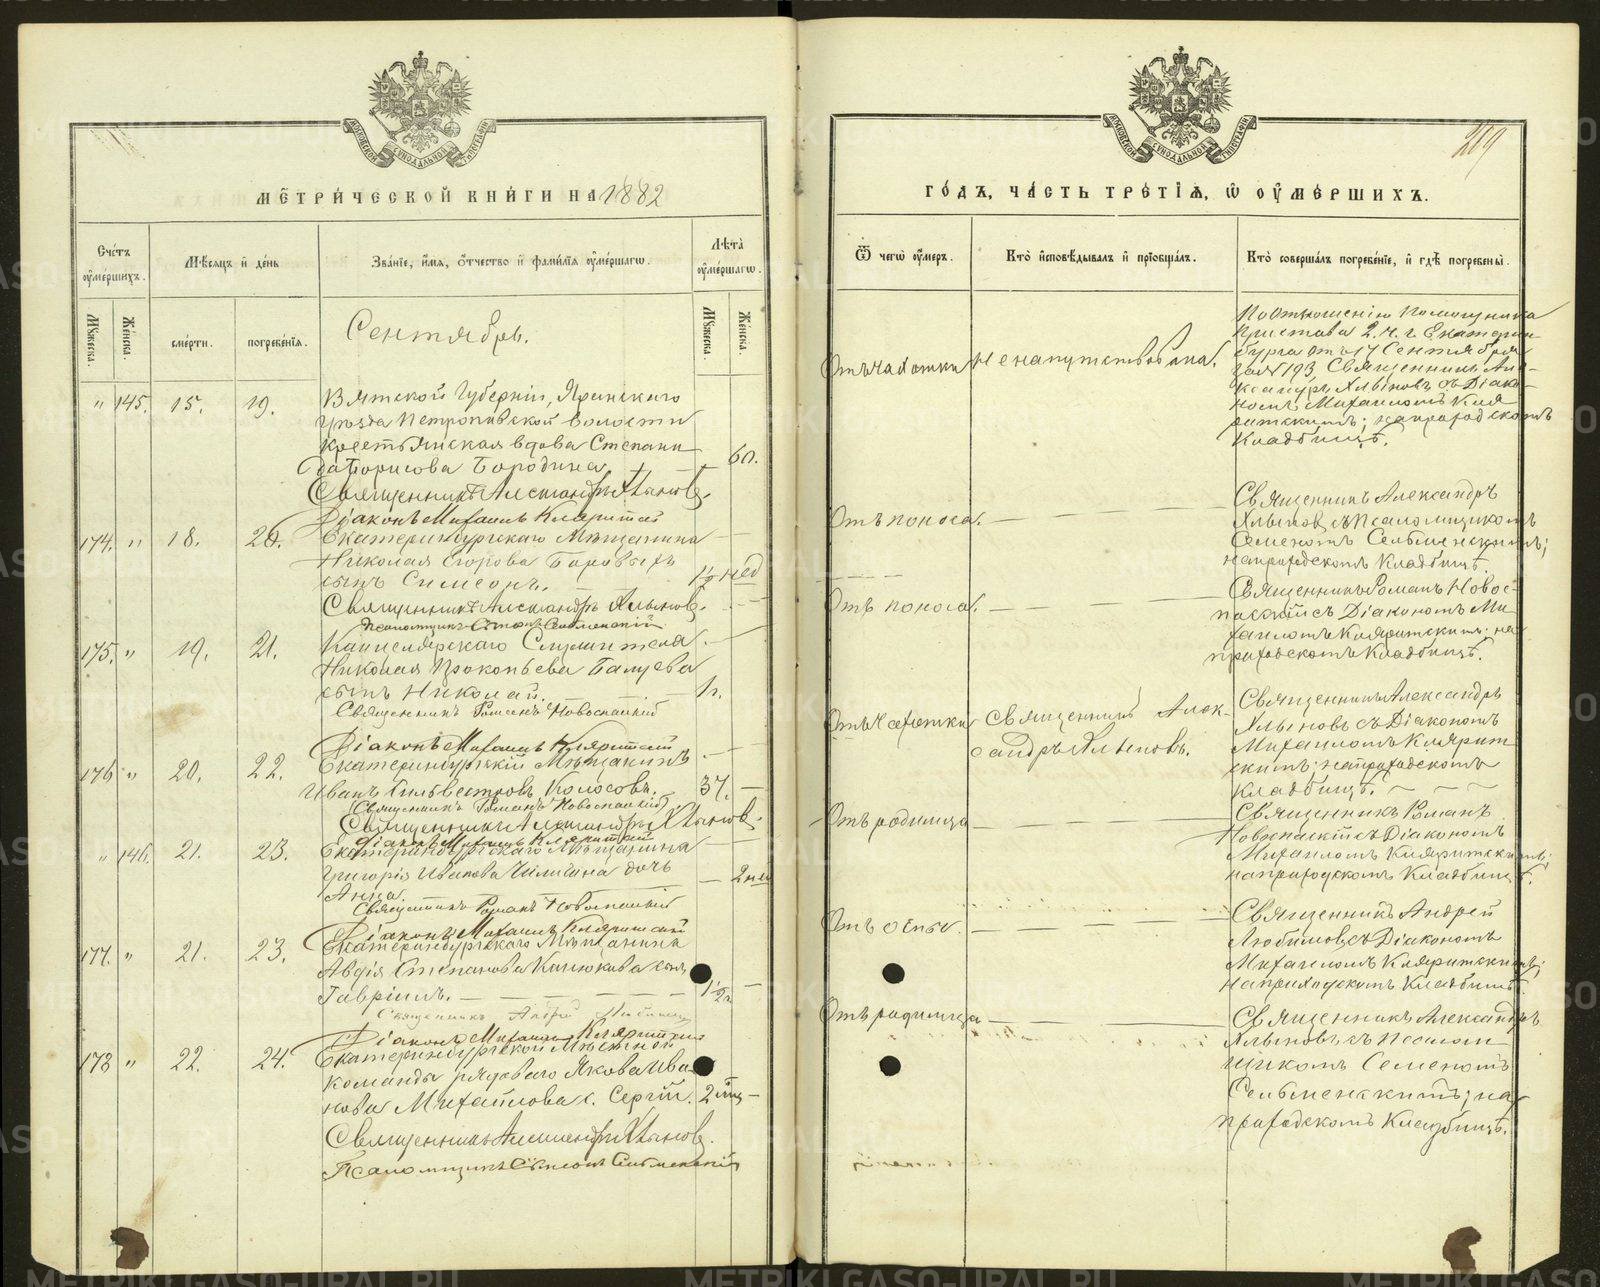 МЕТРИЧЕСКОЙ КНИГИ НА 1882
Счетъ оумершихъ.
Мѣсяцъ и день
Званіе, имя, отчество и фамилія оумершагѡ.
Лѣта оумершагѡ.
Мужеска.
Женска.
смерти.
погребенія.
Мужеска.
Женска.
Сентябрь.
" 145. 15. 19.
Вятской Губерніи, Яранскаго
уѣзда Петропавской волости
крестьянская вдова Степани
да Борисова Бородина 60.
Священникъ Александръ Хлыновъ.
Діаконъ Михаилъ Кляритскій
174. " 18. 20. Екатеринбургскаго Мѣщанина
Николая Егорова Боровыхъ
сынъ Симеонъ. 1½ нед
Священникъ Александръ Хлыновъ.
Псаломщикъ Сельменскій
175. " 19. 21. Канцелярскаго Служителя
Николая Прокопьева Балуева
сынъ Николай. 1 г.
Священникъ Романъ Новоспаскій
Діаконъ Михаилъ Кляритскій
176 " 20. 22. Екатеринбургскій Мѣщанинъ
Иванъ Сильвестровъ Колосовъ. 37.
Священникъ Романъ Новоспаскій
Священникъ Александръ Хлыновъ.
Діаконъ Михаилъ Кляритскій
" 146. 21. 23. Екатеринбургскаго Мѣщанина
Григорія Иванова дочь
Анна. 2 нед
Священникъ Романъ Новоспаскій
Діаконъ Михаилъ Кляритскій
177. " 21. 23. Екатеринбургскаго Мѣщанина
Авдія Степанова сынъ
Гавріилъ. 1½ г.
Священникъ Андрей Любимовъ
Діаконъ Михаилъ Кляритскій
178 " 22. 24. Екатеринбургской Мѣстной
команды рядоваго Якова Ива
нова Михайлова с. Сергій. 2 мѣс
Священникъ Александръ Хлыновъ.
Псаломщикъ Симеонъ Сельменскій
МОСКОВСКОЙ СѴНОДАЛЬНОЙ ТИПОГРАФІИ
269
ГОДЪ, ЧАСТЬ ТРЕТІЯ, Ѡ ОУМЕРШИХЪ.
Ѿ чегѡ оумеръ.
Кто исповѣдывалъ и пріобщалъ.
Кто совершалъ погребеніе, и гдѣ погребены.
Отъ чахотки
Не напутствована.
По отношенію помощника
Пристава 2. ч. г. Екатерин
бурга отъ 17 Сентября
за № 193, Священникъ Але
ксандръ Хлыновъ съ Діако
номъ Михаиломъ Кля
ритскимъ; на приходскомъ
кладбищѣ.
Отъ поноса.
Священникъ Александръ
Хлыновъ съ Псаломщикомъ
Семеномъ Сельменскимъ;
на приходскомъ Кладбищѣ.
Отъ поноса.
Священникъ Романъ Новос-
паскій съ Діакономъ Ми
хаиломъ Кляритскимъ; на
приходскомъ Кладбищѣ.
Отъ чахотки
Священникъ Алек-
сандръ Хлыновъ.
Священникъ Александръ
Хлыновъ съ Діакономъ
Михаиломъ Кляритс
скимъ; на приходскомъ
кладбищѣ.
Отъ родимца
Священникъ Романъ
Новоспаскій съ Діакономъ
Михаиломъ Кляритскимъ;
на приходскомъ Кладбищѣ.
Отъ оспы.
Священникъ Андрей
Любимовъ съ Діакономъ
Михаиломъ Кляритскимъ;
на приходскомъ Кладбищѣ.
Отъ родимца
Священникъ Александръ
Хлыновъ съ Псалом
щикомъ Семеномъ
Сельменскимъ; на
приходскомъ Кладбищѣ.
METRIKI.GASO-URAL.RU